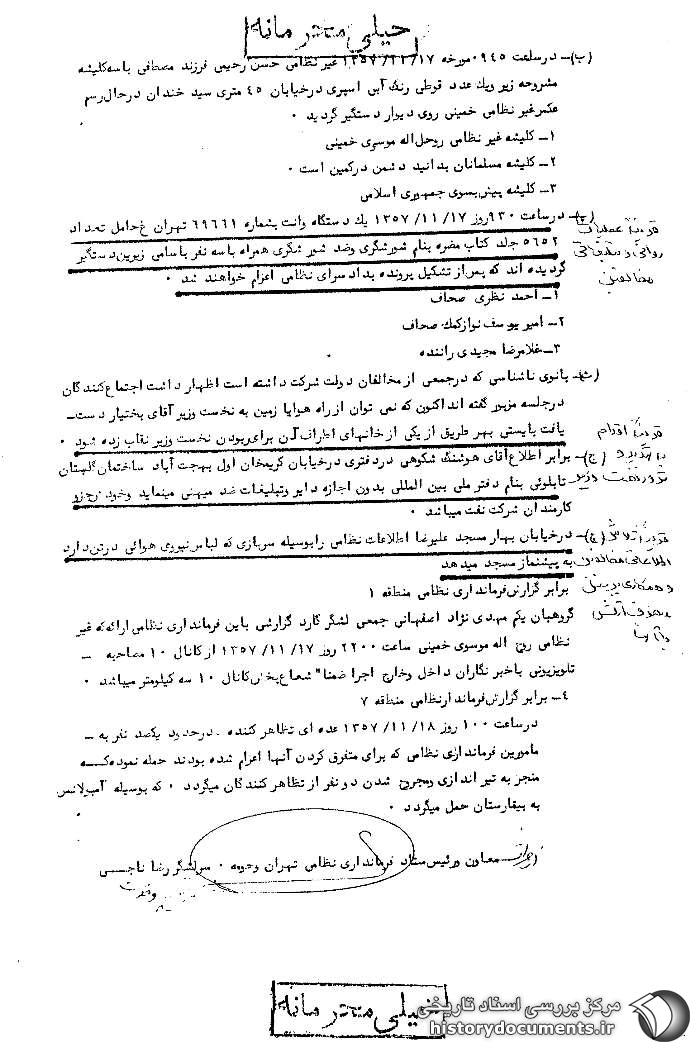 خیلی محرمانه
(ب)ـ درساعت ۰۹۴۵ مورخه ۱۳۵۷/۱۱/۱۷ غیرنظامی حسن رحیمی فرزند مصطفی باسه کلیشه
مشروحه زیر ویك عدد قوطی رنگ آبی اسپری درخیابان ۴۵ متری سید خندان درحال رسم
عکس غیر نظامی خمینی روی دیوار دستگیر گردید ۰
۱ــ کلیشه غیر نظامی روح اله موسوی خمینی
۲ــ کلیشه مسلمانان بدانید دشمن درکمین است ۰
۳ــ کلیشه پیش بسوی جمهوری اسلامی
درساعت ۹۳۰ روز ۱۳۵۷/۱۱/۱۷ یك دستگاه وانت بشماره ۶۹۶۶۱ تهران ع حامل تعداد
۵۶۵۲ جلد کتاب مضره بنام شورشگری وضد شورشگری همراه باسه نفر باسامی زیرین دستگیر
گردیده اند که پس از تشکیل پرونده بدادسرای نظامی اعزام خواهند شد ۰
۱ــ احمد نظری صحاف
۲ــ امیر یوسف نواز کمك صحاف
۳ــ غلامرضا مجیدی راننده
بانوی ناشناسی که درجمعی از مخالفان دولت شرکت داشته است اظهار داشت اجتماع کنندگان
درجلسه مزبور گفته اند اکنون که نمی توان از راه هوا یا زمین به نخست وزیر آقای بختیار دست ــ
یافت بایستی بهر طریق از یکی از خانهای اطراف آن برای ربودن نخست وزیر نقاب زده شود ۰
(ج)ــ برابر اطلاع آقای هوشنگ شکوهی دردفتری درخیابان کریمخان اول بهجت آباد ساختمان گلستان
تابلوئی بنام دفتر ملی بین المللی بدون اجازه دایر وتبلیغات ضد میهنی مینماید وخود جزو
کارمندان شرکت نفت میباشد ۰
(چ)ــ درخیابان بهار مسجد علیرضا اطلاعات نظامی رابوسیله سربازی که لباس نیروی هوائی درتن دارد
به پیشنماز مسجد میدهد
برابر گزارش فرمانداری نظامی منطقه ۱
گروهبان یکم مهدی نژاد اصفهانی جمعی لشگر گارد گزارشی باین فرمانداری نظامی ارائه که غیر
نظامی روح اله موسوی خمینی ساعت ۲۲۰۰ روز ۱۳۵۷/۱۱/۱۷ از کانال ۱۰ مصاحبه ــ
تلویزیونی باخبرنگاران داخل وخارج اجرا ضمنا" شعاع پخش کانال ۱۰ سه کیلومتر میباشد ۰
۴ــ برابر گزارش فرماندار نظامی منطقه ۷
درساعت ۱۰۰ روز ۱۳۵۷/۱۱/۱۸ عده ای تظاهر کننده درحدود یکصد نفر به ــ
مامورین فرمانداری نظامی که برای متفرق کردن آنها اعزام شده بودند حمله نموده کــه
منجر به تیراندازی ومجروح شدن دونفر از تظاهرکنندگان میگردد ۰ که بوسیله آمبولانس
به بیمارستان حمل میگردد ۰
معاون ورئیس ستاد فرمانداری نظامی تهران وحومه ۰ سرلشگر رضا ناجــی
خیلی محرمانه
مرکز بررسی اسناد تاریخی
historydocuments.ir